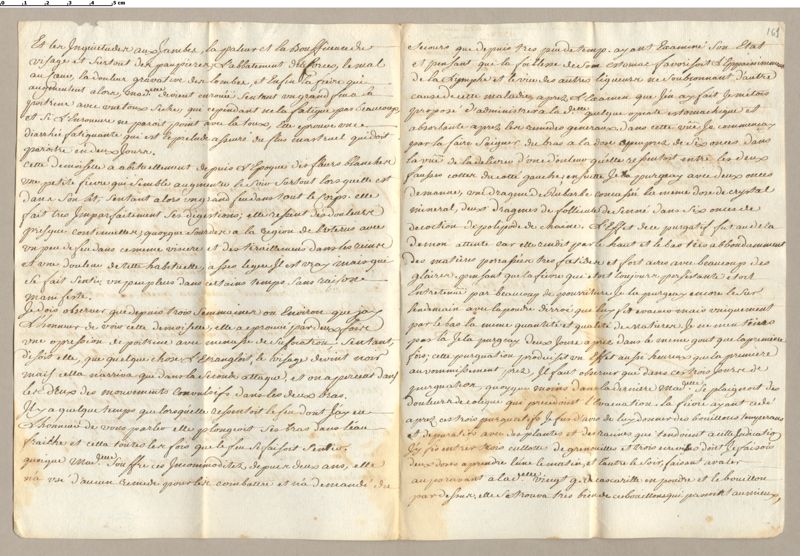 0 1 2 3 4 5 cm
Et les Inquietudes aux Jambes, la paleur et la Bouffissure du
visage et surtout des paupieres, l'abbatement des forces, le mal
au cœur, la douleur gravative des lombes, et enfin la fievre qui
augmentent alors, devient enrouée sentant un grand feu a la
poitrine avec une toux seche, qui cependant ne la fatigue pas beaucoup
et si l'Enroueure ne paroit point avec la toux, elle eprouve une
diarrhée fatiguante qui est le prelude asseuré du flux menstruel qui doit
paroitre en deux Jours.
Cette demoiselle a abituellement depuis l'Epoque des fleurs blanches
une petite fievre qui semble augmenter le soir surtout lorsquelle est
dans son lit, sentant alors un grand feu dans tout le corps. elle
fait tres Imparfaitement ses digestions; elle ressent des douleurs
presque continuelles quoyque sourdes a la region de l'uterus avec
un peu de feu dans ce meme viscere et des tiraillemens dans les reins
et une douleur de tette habituelle, asses legere Il est vray mais qui
se fait sentir un peu plus dans certains temps sans raison
manifeste.
Je dois observer que depuis trois semmaines ou Environ que jay
l'honneur de voir cette demoiselle, elle a eprouvé par deux fois
une opression de poitrine avec menasse de sufocation, sentant,
disoit elle, que quelque chose l'Etrangloit, le visage devint noir
mais cella narriva que dans la seconde attaque, et on aperceut dans
les deux des mouvements convulsifs dans les deux bras.
Il y a quelque temps que lorsquelle ressentoit le feu dont Jay eu
l'honneur de vous parler elle plongeoit ses bras dans leau
fraiche et cella toutes les fois que le feu se faisoit sentir.
quoique souffre ces Incommodités, depuis deux ans, elle
na usé d'aucun remede pour les combattre et n'a demandé du
161
secours que depuis tres peu de temp. ayant Examiné son Etat
et pensant que la foiblesse de son estomac favorisoit
de la lymphe et le vice des autres liqueurs ne
cause de cette maladie, apres l'Examen que J'en ay fait Je m'etois
proposé d'administrer a la quelque opiate estomachique et
absorbante apres les remedes generaux. dans cette vüe Je commençay
par la faire saigner du bras a la dose apeu pres de six onces dans
la vuë de la delivrer d'une douleur quelle sentoit entre les deux
fausses cottes du cotté gauche; ensuitte Je la purgeay avec deux onces
de manne, une dragme de Rubarbe la meme dose de crystal
mineral, deux dragmes de follicule de senné dans six onces de
decoction de polipode de chaine. L'Effet de ce purgatif fut au dela
de mon attente car elle rendit par le haut et le bas tres abbondamment
des matieres porracées tres fœtides et fort acres avec beaucoup des
glaires. pensant que la fievre qui etoit toujours persistante etoit
entretenüe par beaucoup de pourriture Je la purgeay encore le sur
lendemain avec la poudre qui luy fit evacuer mais uniquement
par le bas la meme quantité et qualité de matieres. Je ne men tiens
pas la Je la purgay deux Jours apres dans le meme gout que la premiere
fois; cette purgation produisit un Effet aussi heureux que la premiere
au vomissement pres. Il faut observer que dans ces trois Jours de
purgation, quoyque moins dans la derniere se plaigeoit des
douleurs de colique qui precedoient l'evacuation. la fievre ayant cedé
apres ces trois purgatifs Je fus d'avis de luy donner des bouillons temperans
et depuratifs avec des plantes et des racines qui tendoient a cette Indication
J'y fis entrer trois cuisses de grenouilles et trois dont Je faisois
deux doses a prendre l'une le matin, et l'autre le soir, faisant avaler
auparavant a la vingt g. de cascarille en poudre et le bouillon
par dessus. elle se trouva tres bien de ces bouillons qui passoient au mieux,